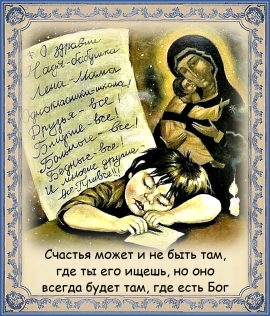 О здравии
Надя-бабушка
Лена-Мама
Друзья-все!
Близкие-все!
Больные-все!
Бедные-все!
И многие другие-
все-Привсе!!!
Счастья может и не быть там,
где ты его ищешь, но оно
всегда будет там, где есть Бог